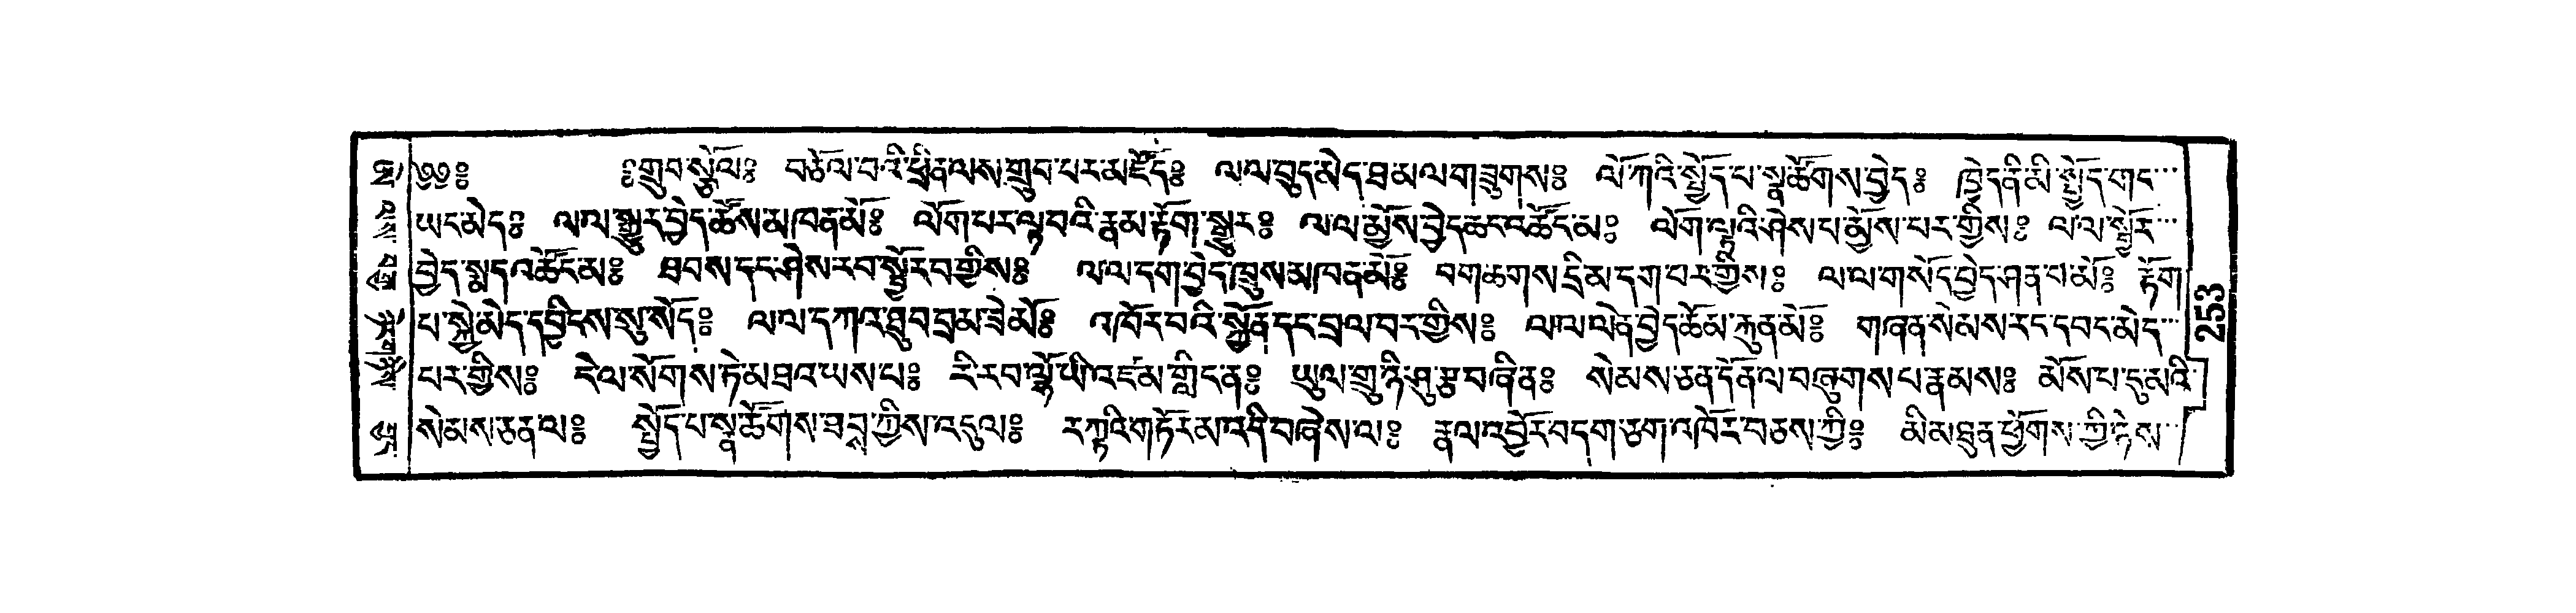 ༄༅༔ ༔གྲུབ་སྩོལ༔ བཅོལ་བའི་ཕྲིན་ལས་གྲུབ་པར་མཛོད༔ ལ་ལ་བུད་མེད་ཐ་མལ་གཟུགས༔ ལེ་ཀའི་སྤྱོད་པ་སྣ་ཚོགས་བྱེད༔ ཁྱེད་ནི་མི་སྤྱོད་གང་
ཡང་མེད༔ ལ་ལ་སྒྱུར་བྱེད་ཚོས་མ་ཁན་མོ༔ ལོག་པར་ལྟ་བའི་རྣམ་རྟོག་སྒྱུར༔ ལ་ལ་མྱོས་བྱེད་ཆང་འཚོང་མ༔ ལོག་ལྟའི་ཤེས་པ་མྱོས་པར་གྱིས༔ ལ་ལ་སྦྱོར་
བྱེད་སྨད་འཚོང་མ༔ ཐབས་དང་ཤེས་རབ་སྦྱོར་བ་གྱིས༔ ལ་ལ་དག་བྱེད་ཁྲུས་མ་ཁན་མོ༔ བག་ཆགས་དྲི་མ་དག་པར་གྱིས༔ ལ་ལ་གསོད་བྱེད་ཤན་པ་མོ༔ རྟོག
པ་སྐྱེ་མེད་དབྱིངས་སུ་སོད༔ ལ་ལ་དཀའ་ཐུབ་བྲམ་ཟེ་མོ༔ འཁོར་བའི་སྐྱོན་དང་བྲལ་བར་གྱིས༔ ལ་ལ་ལེན་བྱེད་ཚོམ་རྐུན་མོ༔ གཞན་སེམས་རང་དབང་མེད་
པར་གྱིས༔ དེ་ལ་སོགས་ཏེ་མཐའ་ཡས་པ༔ རི་རབ་ལྷོ་ཡི་འཛམ་གླིང་ན༔ ཡུལ་གྲུ་ཉི་ཤུ་རྩ་བཞི་ན༔ སེམས་ཅན་དོན་ལ་བཞུགས་པ་རྣམས༔ མོས་པ་དུ་མའི་
སེམས་ཅན་ལ༔ སྤྱོད་པ་སྣ་ཚོགས་ཐབས་ཀྱིས་འདུལ༔ རཀྟའི་གཏོར་མ་འདི་བཞེས་ལ༔ རྣལ་འབྱོར་བདག་ཅག་འཁོར་བཅས་ཀྱི༔ མི་མཐུན་ཕྱོགས་ཀྱི་ཉེས་